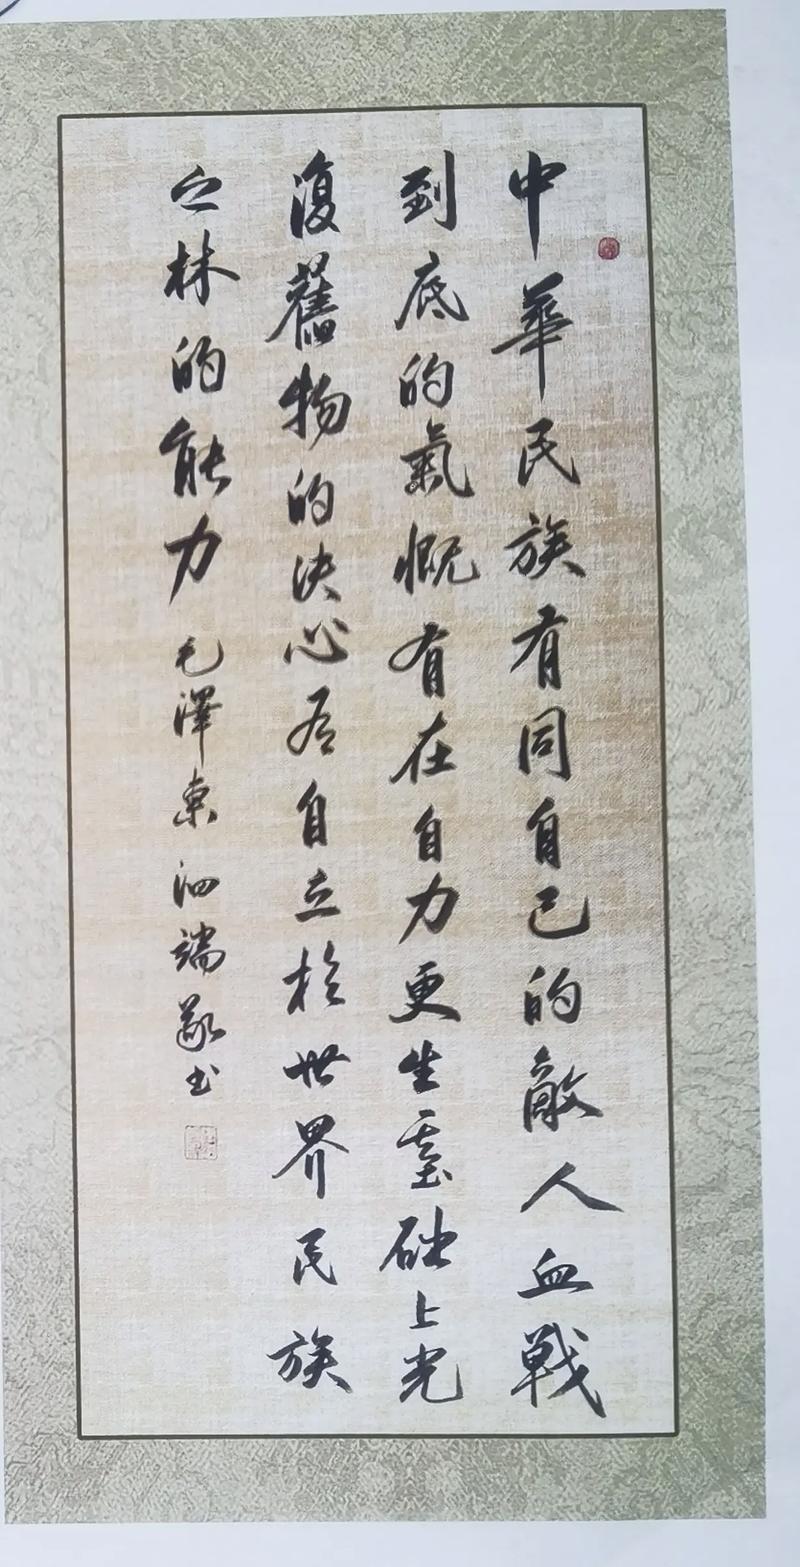 中華民族有同自己的敵人血戰
到底的氣慨有在自力更生基础上光
復舊物的决心有自立於世界民族
之林的能力 毛澤東 泗端敬书